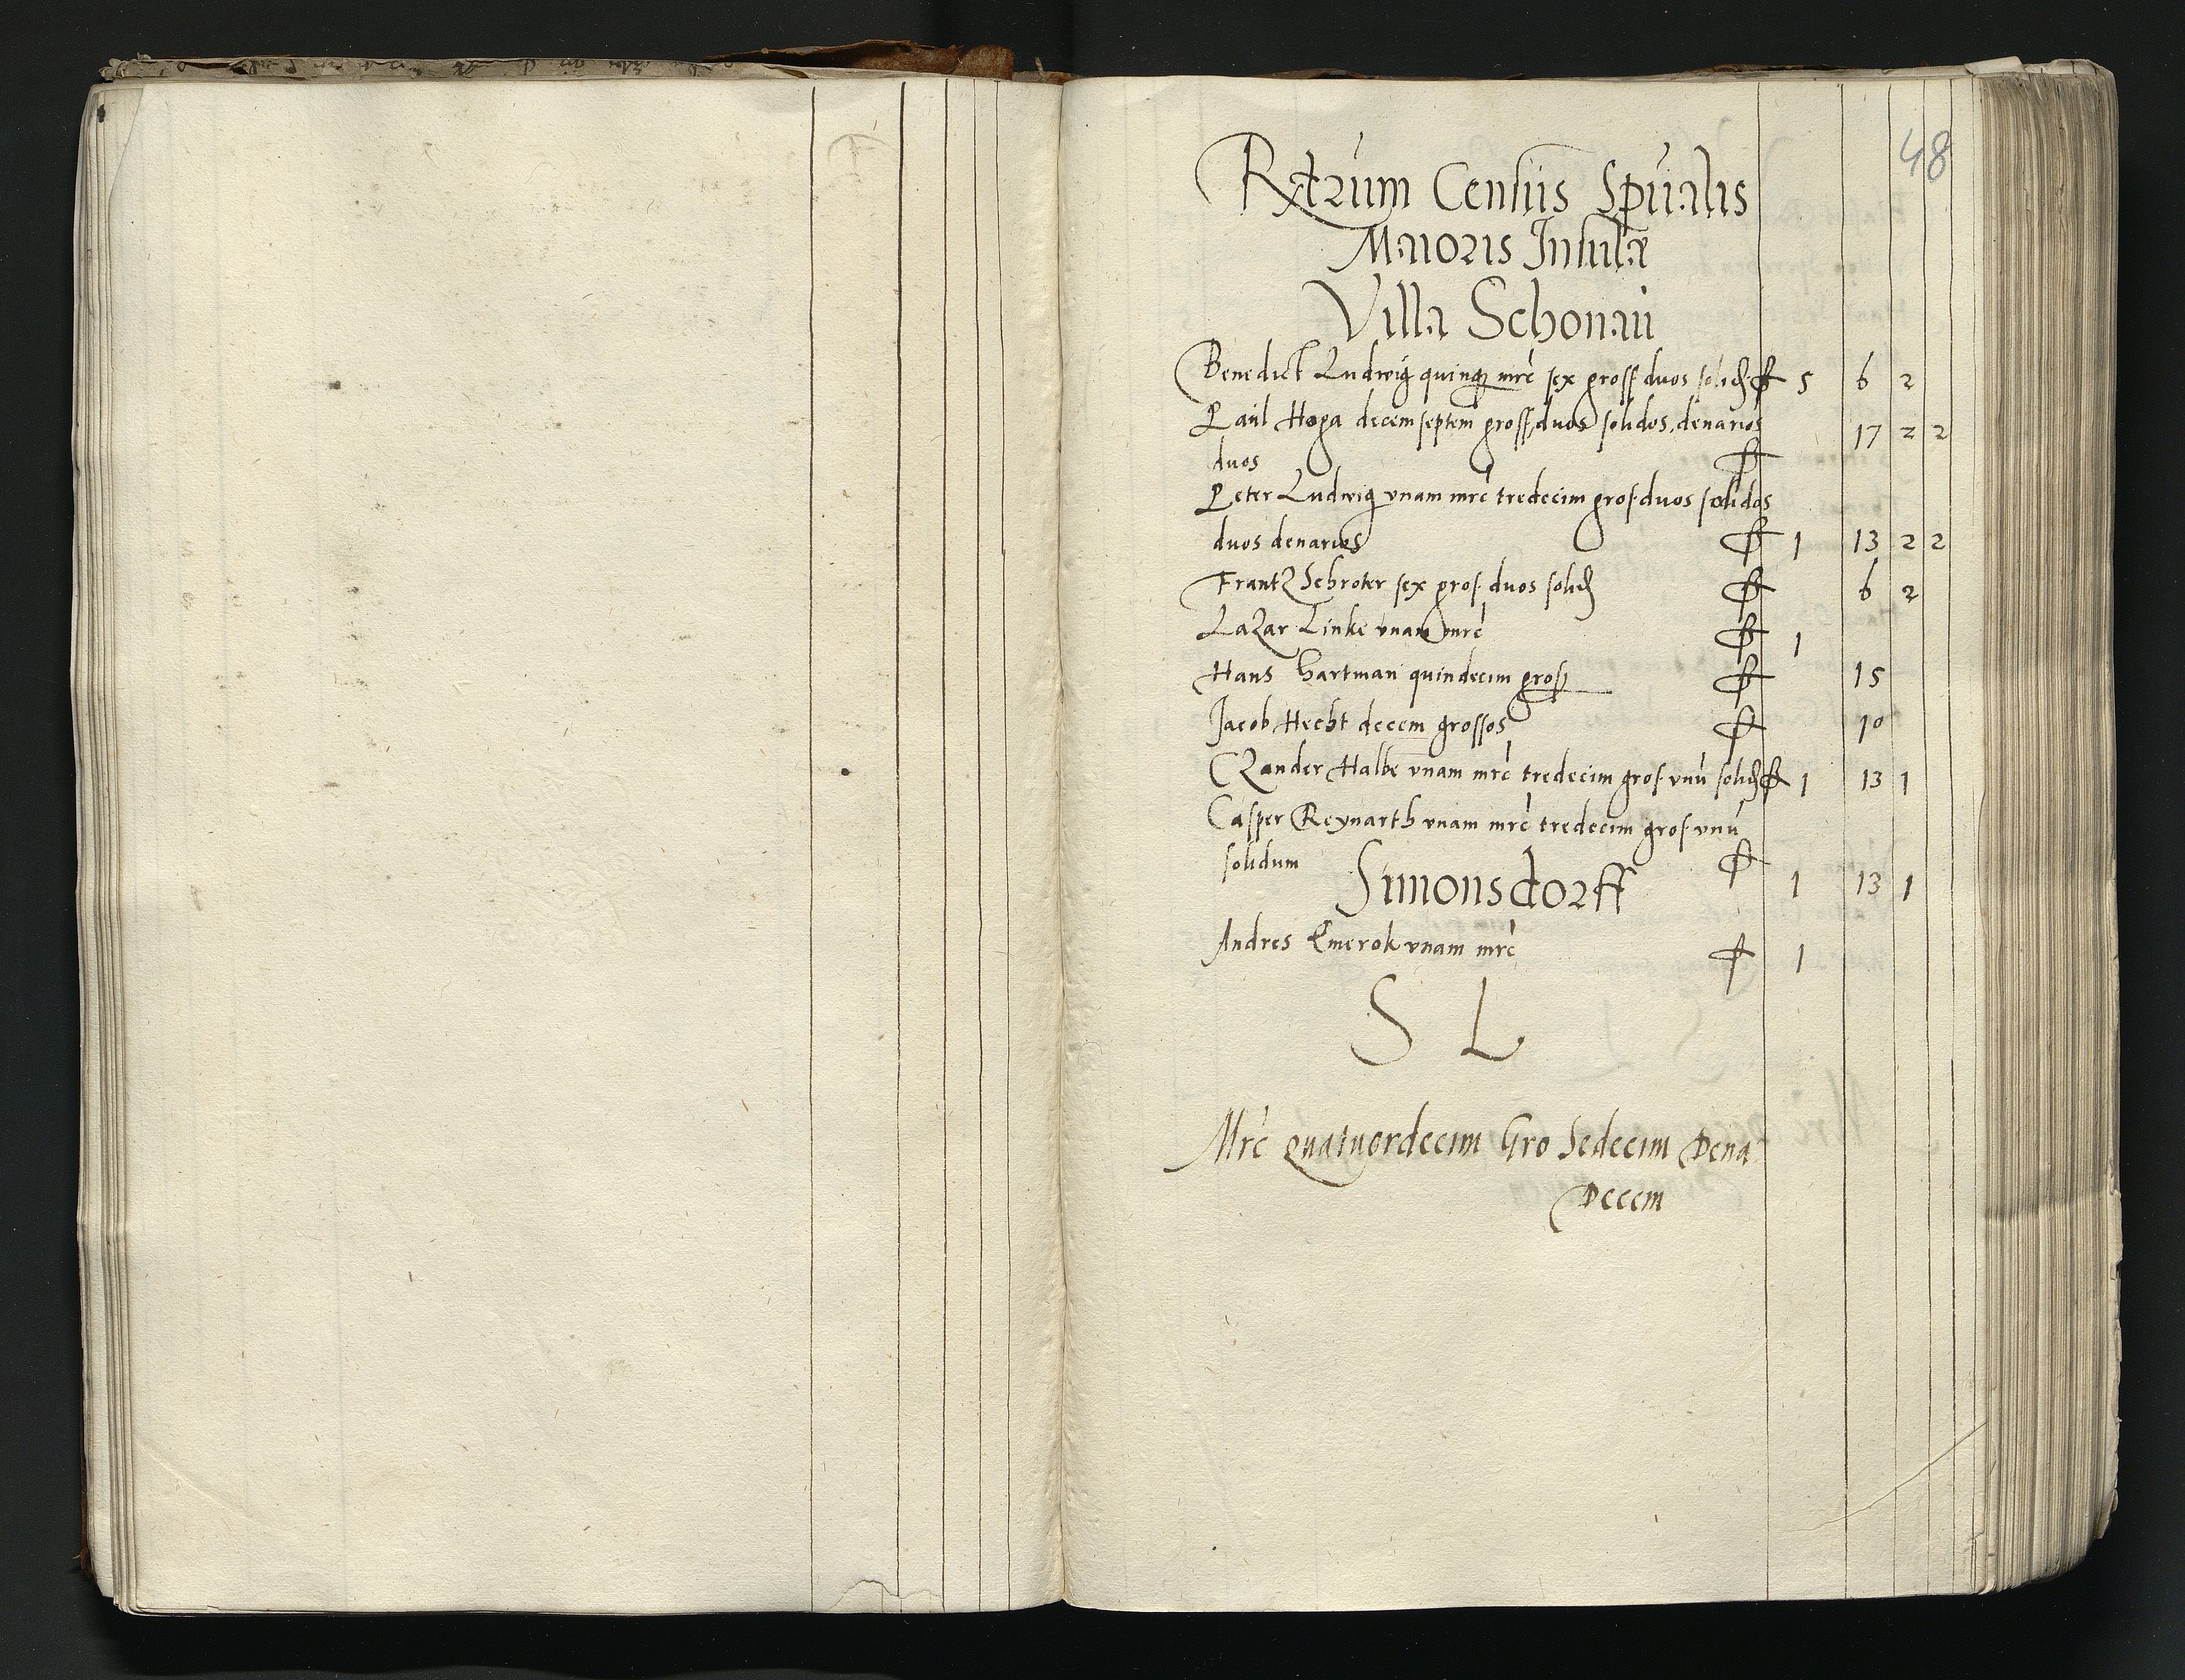 48
Rtarum Census Spualis
Maioris Insulæ
Villa Schonaw
Benedict Ludwig quinqz mrc sex gross duos solid 5 6 2
Paul Hoga decem septem gross, duos solidos, denarios 17 2 2
duos
Peter Ludwig vnam mrc tredecim gros. duos solidos
duos denarios 1 13 2 2
Frantz Schroter sex gros. duos solid 6 2
Lazar Linke vnam mrc 1
Hans hartman quindecim gros 15
Jacob Hecht decem grossos 10
Czander Halbe vnam mrc tredecim gros. vnu solid 1 13 1
Casper Reynarth vnam mrc tredecim gros. vnu
solidum 1 13 1
Simonsdorff
Andres vnam mrc 1
S L
Mrc quatuordecim Gro Sedecim Dena
Decem